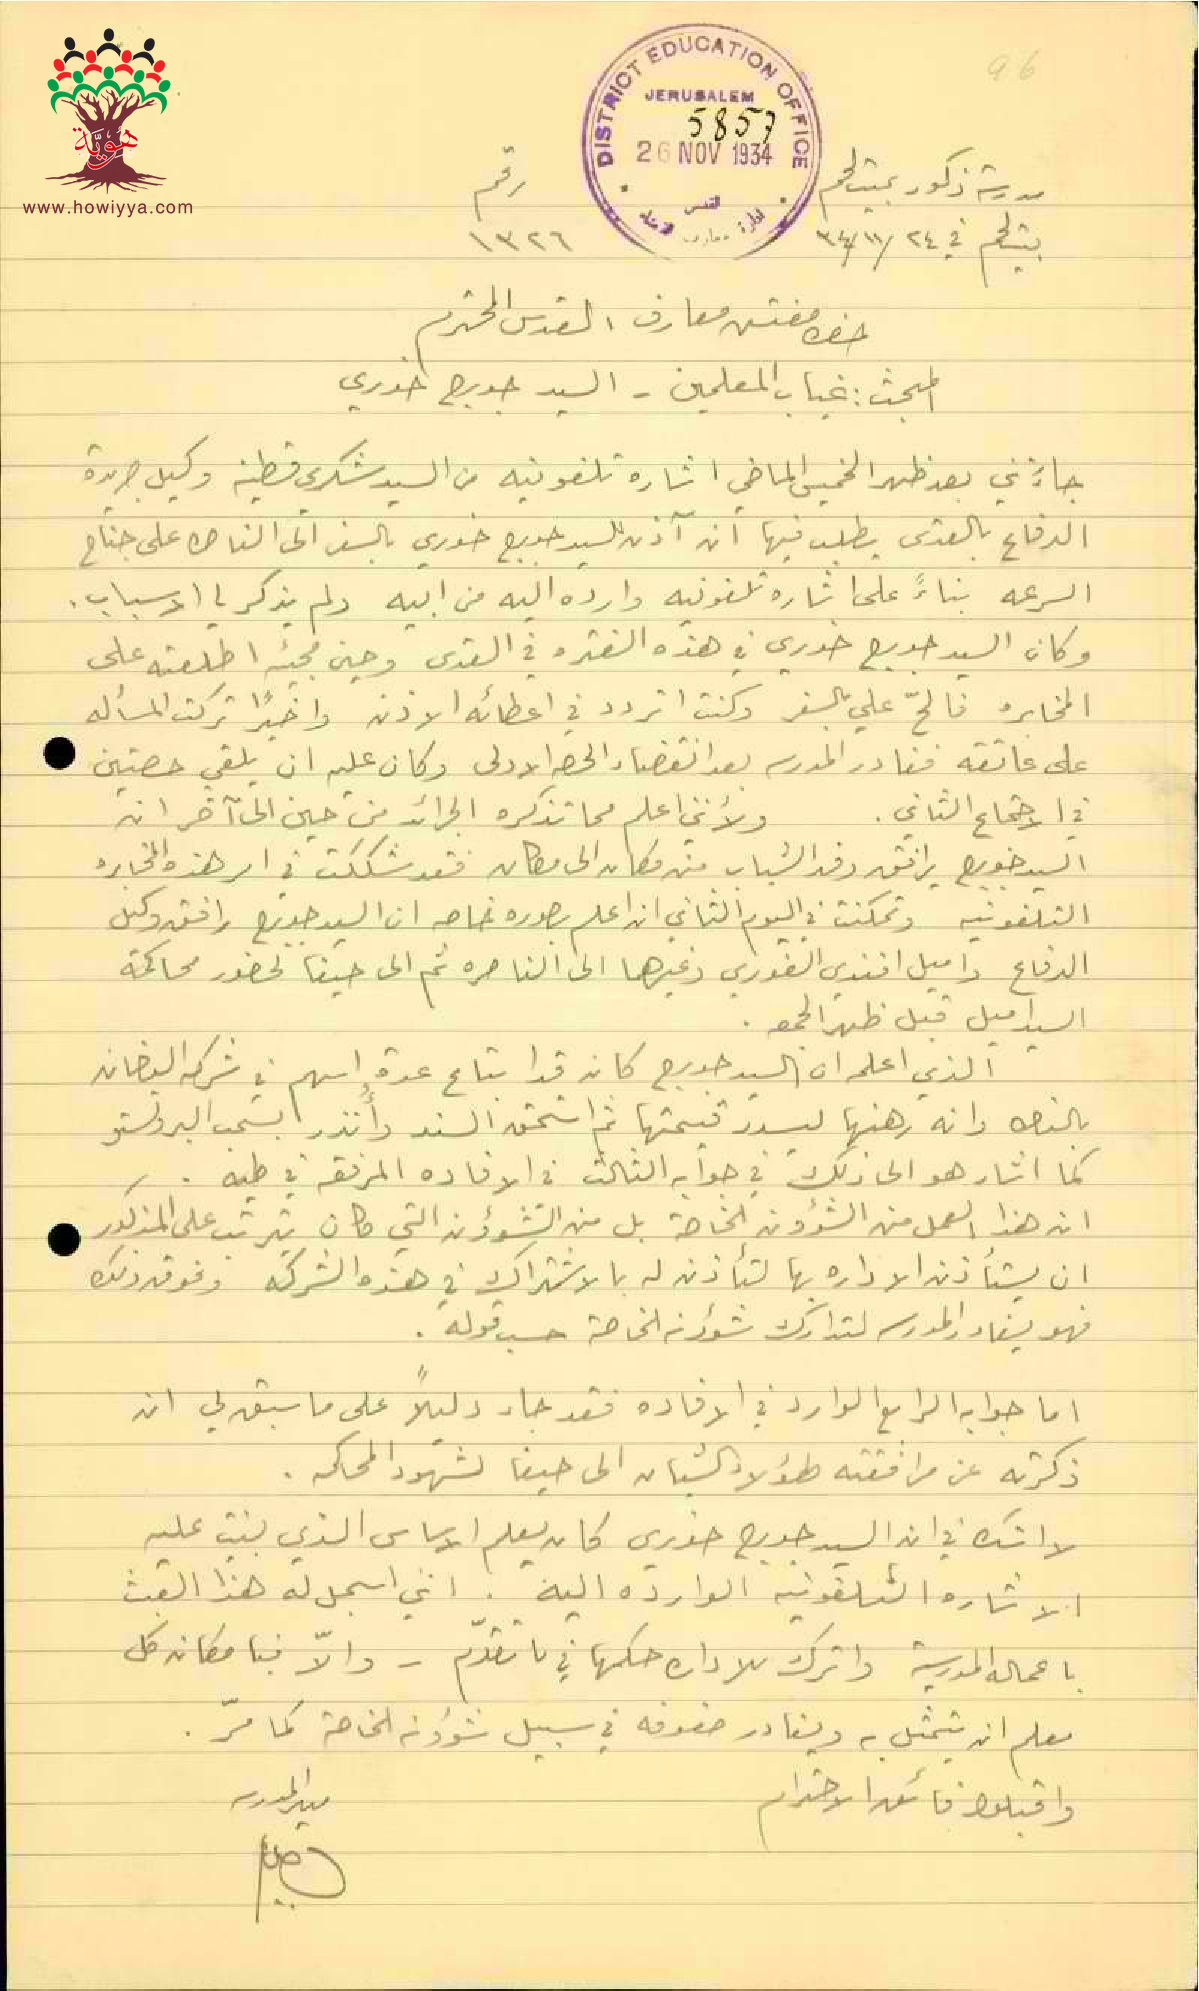 96
DISTRICT EDUCATION OFFICE
JERUSALEM
5857
26 NOV 1934
ادارة معارف القدس
هوية
www.howiyya.com
مدرسة ذكور بيت لحم
رقم
بيت لحم في ٢٤/١١/٣٤
١٣٢٦
حضرة مفتش معارف القدس المحترم
المبحث: غياب المعلمين - السيد جورج خوري
جاءني بعد ظهر الخميس الماضي اشاره تلفونيه من السيد شكري قطينه وكيل جريدة
الدفاع بالقدس يطلب فيها ان آذن للسيد جورج خوري بالسفر الى الناصره على جناح
السرعه بناءً على اشاره تلفونيه وارده اليه من ابيه ولم يذكر لي الاسباب.
وكان السيد جورج خوري في هذه الفتره في القدس وحين مجيئه اطلعته على
المخابره فألحّ علي بالسفر وكنت اتردد في اعطائه الاذن واخيرًا تركت المسأله
على عاتقه فغادر المدرسه بعد انقضاء الحصه الاولى وكان عليه ان يلقي حصتين
في الاجتماع الثاني. ولأنني اعلم مما تذكره الجرائد من حين الى آخر ان
السيد جورج يرافق وفد الشباب من مكان الى مكان فقد شككت في امر هذه المخابره
التلفونيه وتمكنت في اليوم الثاني ان اعلم بصوره خاصه ان السيد جورج رافق وكيل
الدفاع واميل افندي الغوري وغيرهما الى الناصره ثم الى حيفا لحضور محاكمة
السيد اميل قبل ظهر الجمعه.
الذي اعلمه ان السيد جورج كان قد ابتاع عدة اسهم في شركه
بالناصره وانه رهنها ليسدد قيمتها ثم استحق السند وأُنذر بسحب البروتستو
كما اشار هو الى ذلك في جوابه الثالث في الافاده المرفقه في طيه.
ان هذا العمل من الشؤون الخاصة بل من الشؤون التي كان يترتب على المذكور
ان يستأذن الاداره بها لتأذن له بالاشتراك في هذه الشركه وفوق ذلك
فهو يغادر المدرسه لتدارك شؤونه الخاصة حسب قوله.
اما جوابه الرابع الوارد في الافاده فقد جاء دليلاً على ما سبق لي ان
ذكرته عن مرافقته لهؤلاء الشبان الى حيفا لشهود المحاكمه.
لا اشك في ان السيد جورج خوري كان يعلم الاساس الذي بنيت عليه
الاشاره التلفونيه الوارده اليه. انني اسجل له هذا العبث
باعماله المدرسية واترك للاداره حكمها في ما تقدّم - والاّ فبامكان كل
معلم ان يتمثل به ويغادر صفوفه في سبيل شؤونه الخاصة كما مرّ.
واقبلوا فائق الاحترام
مدير المدرسه